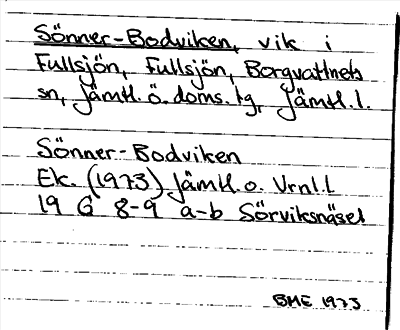 Sönner-Bodviken, vik i
Fullsjön, Fullsjön, Borgvattnets
sn, Jämtl. ö. doms. tg, Jämtl. l.
Sönner-Bodviken
Ek. (1973) Jämtl. o. Vrnl. L
19 G 8-9 a-b Sörviksnäset
BME 1973